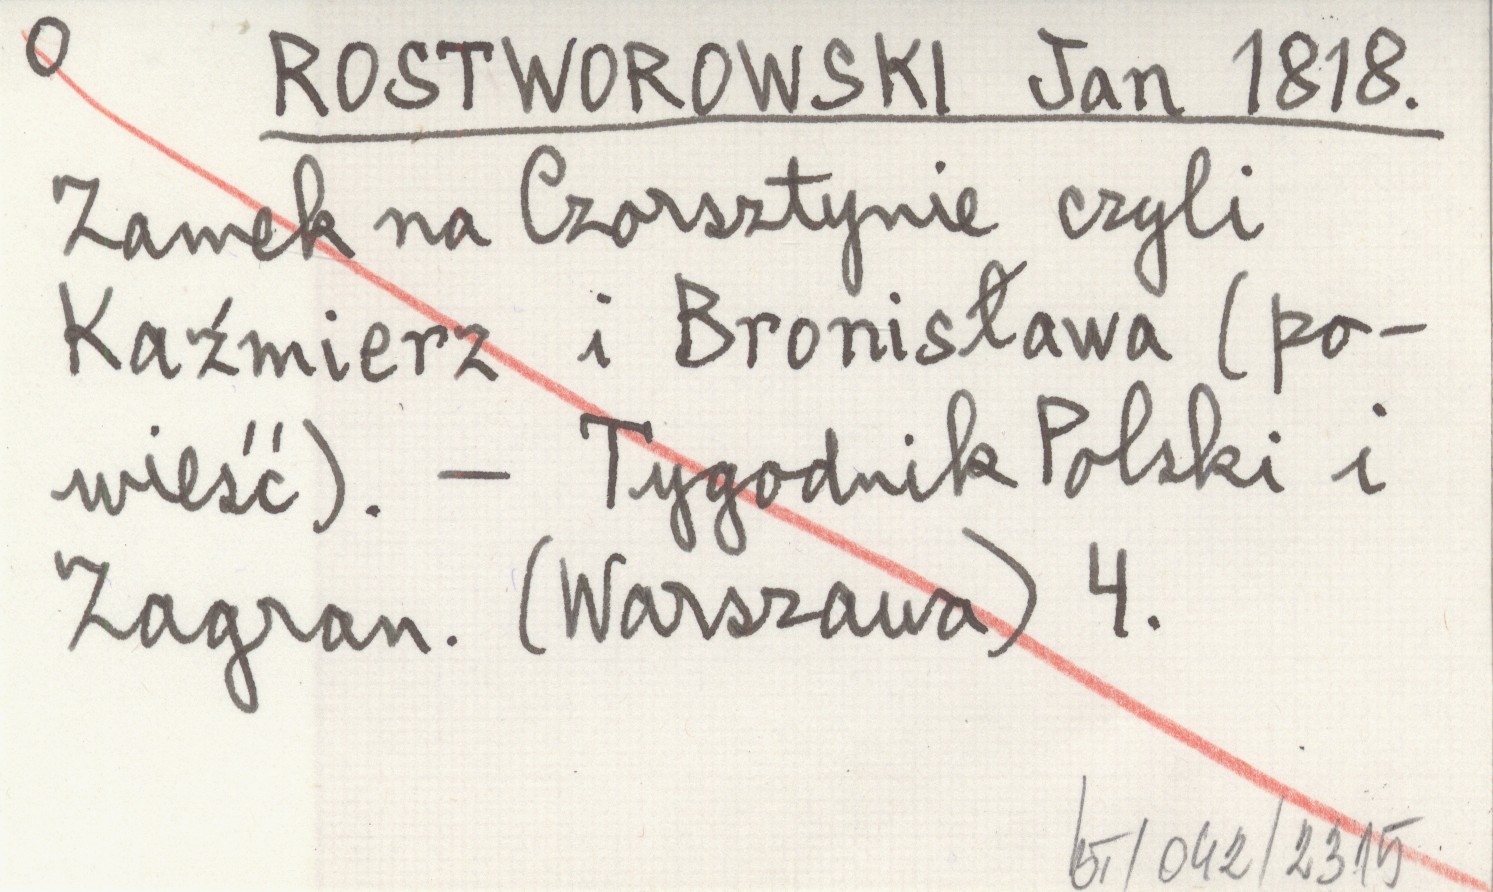 O ROSTWOROWSKI Jan 1818.
Zamek na Czorsztynie czyli
Kaźmierz i Bronisława (po-
wieść). — Tygodnik Polski i
Zagran. (Warszawa) 4.
/042/2315